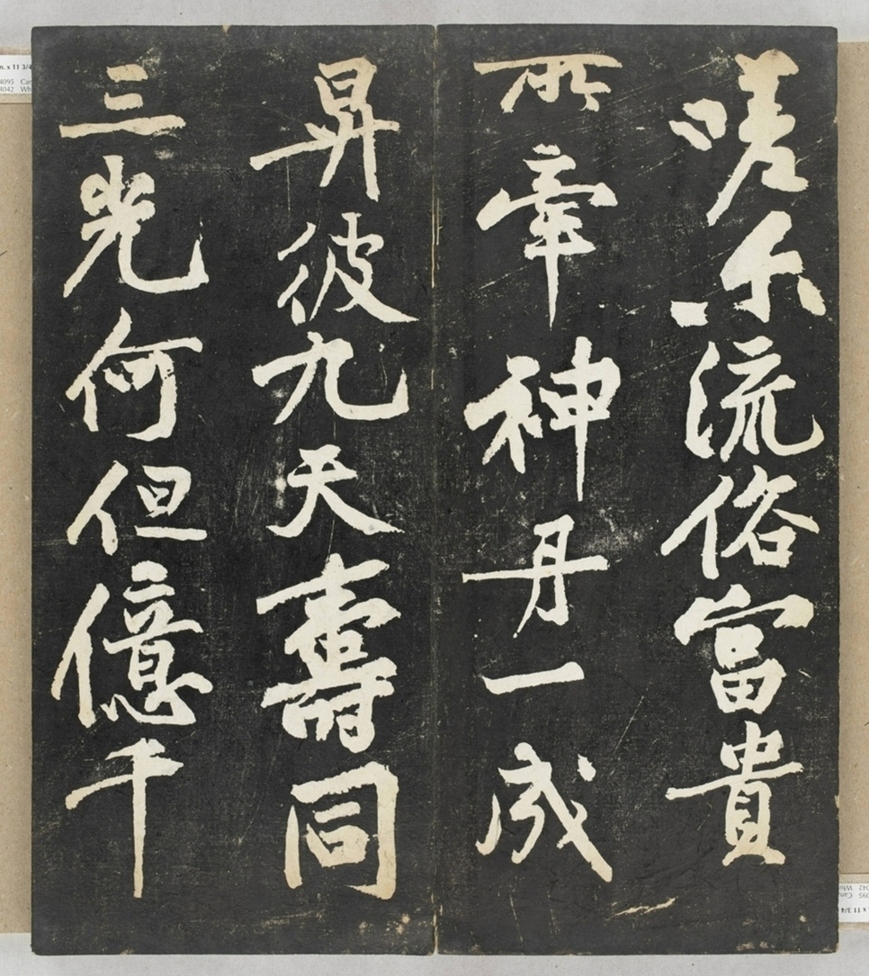 嗟尒流俗富貴
所牽神丹一成
昇彼九天壽同
三光何但億千
x 11 3/4